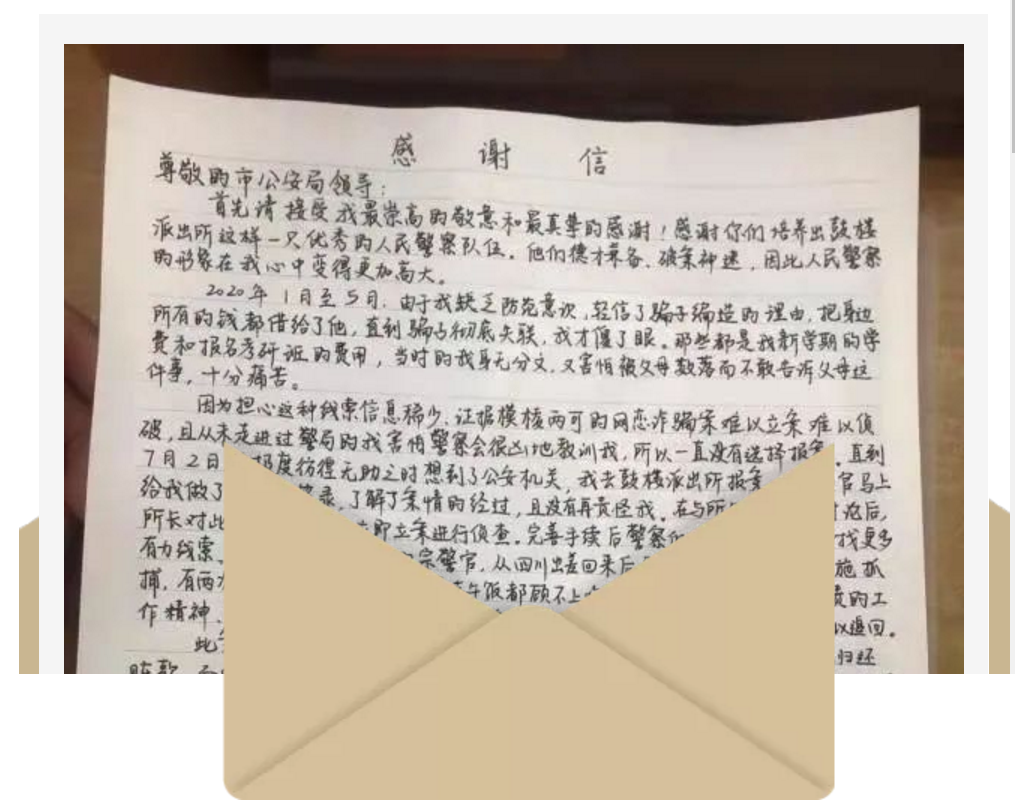 感 谢 信
尊敬的市公安局领导:
首先请接受我最崇高的敬意和最真挚的感谢!感谢你们培养出鼓楼
派出所这样一只优秀的人民警察队伍。他们德才兼备、破案神速,因此人民警察
的形象在我心中变得更加高大。
2020年1月至5月,由于我缺乏防范意识,轻信了骗子编造的理由,把身边
所有的钱都借给了他,直到骗子彻底失联,我才傻了眼。那些都是我新学期的学
费和报名考研班的费用,当时的我身无分文,又害怕被父母数落而不敢告诉父母这
件事,十分痛苦。
因为担心这种线索信息稀少、证据模棱两可的网恋诈骗案难以立案难以侦
破,且从未走进过警局的我害怕警察会很凶地教训我,所以一直没有选择报案。直到
7月2日 极度彷徨无助之时想到了公安机关,我去鼓楼派出所报案 官马上
给我做了 笔录,了解了案情的经过,且没有再责怪我。在与所 讨论后,
所长对此 立即立案进行侦查。完善手续后警察 找更多
有力线索、 宗警官,从四川出差回来后 施抓
捕,有两 午饭都顾不上 的工
作精神、 以退回。
此 归还
赃款